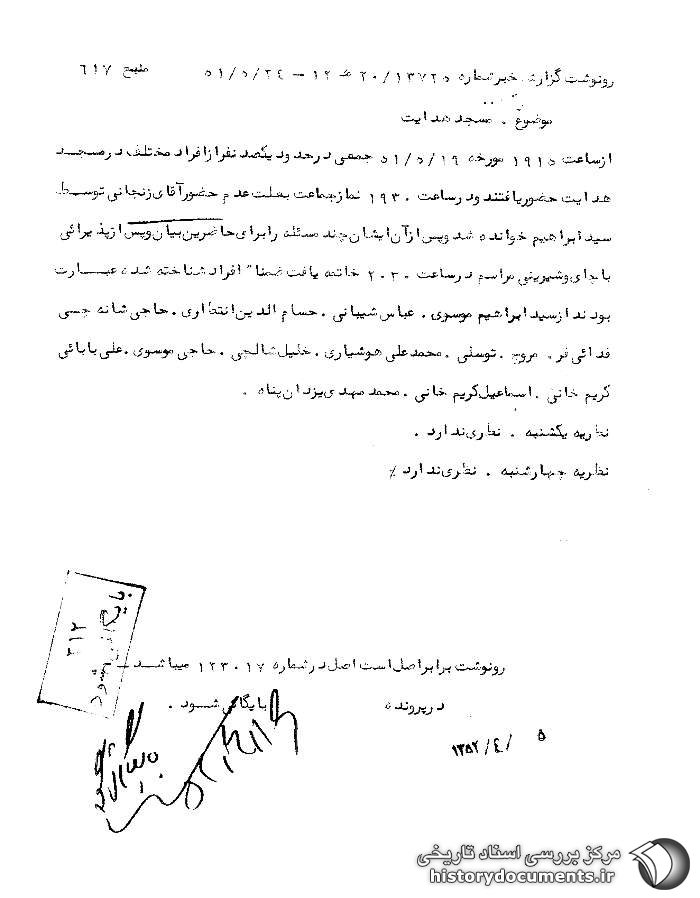 رونوشت گزارش خبر شماره ۲۰/۱۳۷۲۵ هـ ۱۲ – ۵۱/۵/۲۴ منبع ۶۱۷
موضوع . مسجد هدایت
از ساعت ۱۹۱۵ مورخه ۵۱/۵/۱۹ جمعی در حدود یکصد نفر از افراد مختلف در مسجد
هدایت حضور یافتند و در ساعت ۱۹۳۰ نماز جماعت بعلت عدم حضور آقای زنجانی توسط
سید ابراهیم خوانده شد و پس از آن ایشان چند مسئله را برای حاضرین بیان و پس از پذیرائی
با چای و شیرینی مراسم در ساعت ۲۰۳۰ خاتمه یافت ضمنا" افراد شناخته شده عبارت
بودند از سید ابراهیم موسوی . عباس شیبانی . حسام الدین انتظاری . حاجی شانه چی
فدائی فر . مروج . توسلی . محمدعلی هوشیاری . خلیل شالچی . حاجی موسوی . علی بابائی
کریم خانی . اسماعیل کریم خانی . محمد مهدی یزدان پناه .
نظریه یکشنبه . نظری ندارد .
نظریه چهارشنبه . نظری ندارد ٪
بایگانی شود
۳۱۲
رونوشت برابر اصل است اصل در شماره ۱۲۳۰۱۷ میباشد
در پرونده بایگانی شود .
۵ /۴/ ۱۳۵۲
مرکز بررسی اسناد تاریخی
historydocuments.ir